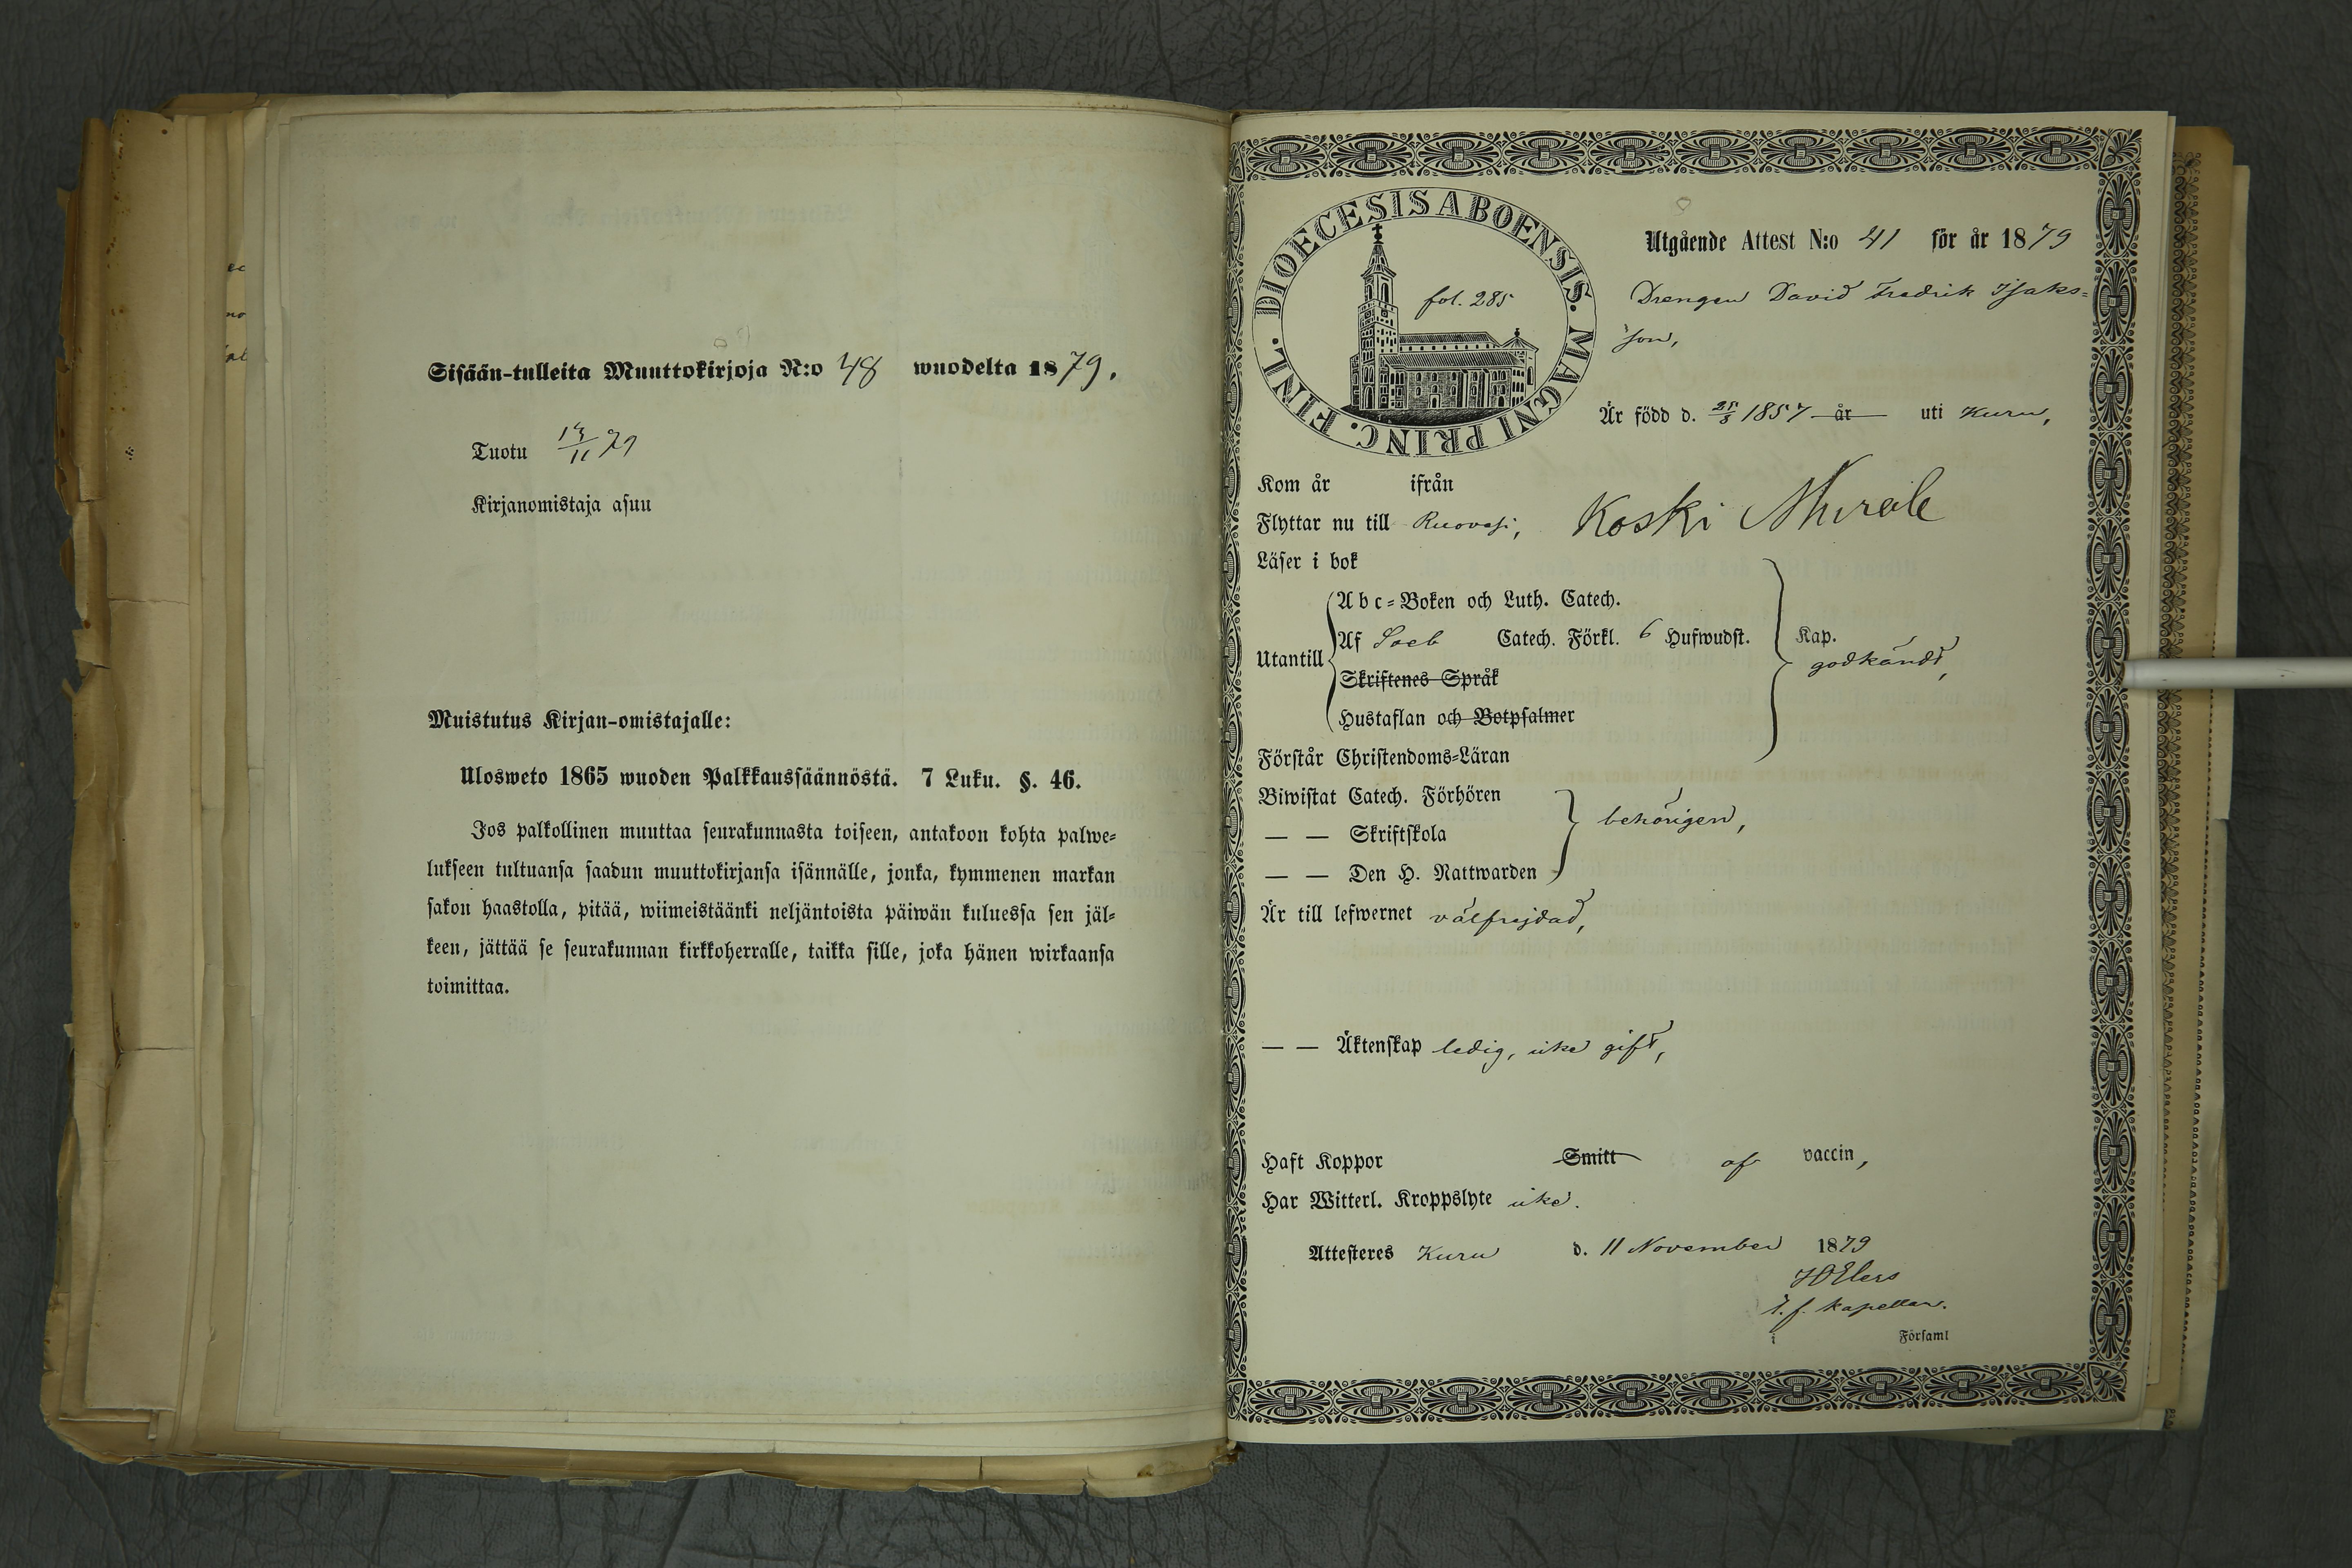 Sisään-tulleita Muuttokirjoja N:o 48 wuodelta 1879.
Tuotu 13/11 79
Kirjanomistaja asuu
Muistutus Kirjan-omistajalle:
Ulosweto 1865 wuoden Palkkaussäännöstä. 7 Luku. §. 46.
Jos palkollinen muuttaa seurakunnasta toiseen, antakoon kohta palwe=
lukseen tultuansa saadun muuttokirjansa isännälle, jonka, kymmenen markan
sakon haastolla, pitää, wiimeistäänki neljäntoista päiwän kuluessa sen jäl=
keen, jättää se seurakunnan kirkkoherralle, taikka sille, joka hänen wirkaansa
toimittaa.
DIOECESIS ABOENSIS. MAGNI PRINC. FINL.
fol. 285
Utgående Attest N:o 41 för år 1879
Drengen David Fredrik Isaks=
son,
Är född d. 25/8 1857 år uti Kuru,
Kom år ifrån
Flyttar nu till Ruovesi, Koski
Läser i bok
Utantill
Abc=Boken och Luth. Catech.
Af Soeb Catech. Förkl. 6 Hufwudst.
Skriftenes Språk
Hustaflan och Botpsalmer
Kap.
godkändt,
Förstår Christendoms=Läran
Biwistat Catech. Förhören
— — Skriftskola
— — Den H. Nattwarden
behörigen,
Är till lefwernet välfrejdad,
— — Äktenskap ledig, icke gift,
Haft Koppor Smitt af vaccin,
Har Witterl. Kroppslyte icke.
Attesteres Kuru d. 11 November 1879
Elers
t. f. kapellan.
i Församl